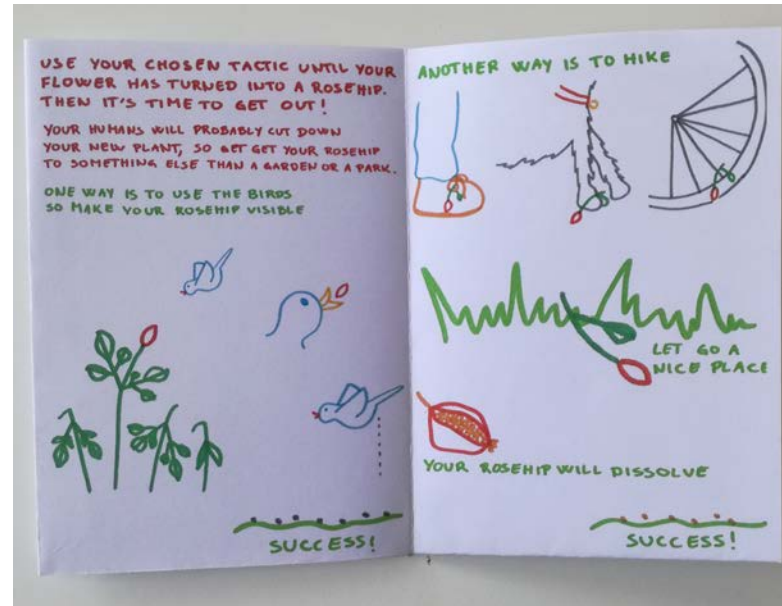 USE YOUR CHOSEN TACTIC UNTIL YOUR
FLOWER HAS TURNED INTO A ROSEHIP.
THEN IT'S TIME TO GET OUT!
YOUR HUMANS WILL PROBABLY CUT DOWN
YOUR NEW PLANT, SO GET GET YOUR ROSEHIP
TO SOMETHING ELSE THAN A GARDEN OR A PARK.
ONE WAY IS TO USE THE BIRDS
SO MAKE YOUR ROSEHIP VISIBLE
SUCCESS!
ANOTHER WAY IS TO HIKE
LET GO A
NICE PLACE
YOUR ROSEHIP WILL DISSOLVE
SUCCESS!